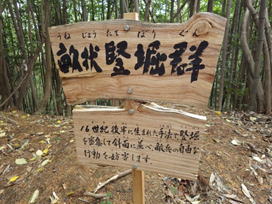 うねじょうたてぼりぐん
畝状竪堀群
16世紀後半に生まれた手法で竪堀
を当然に斜面に並べ、敵兵の自由な
行動を妨害します